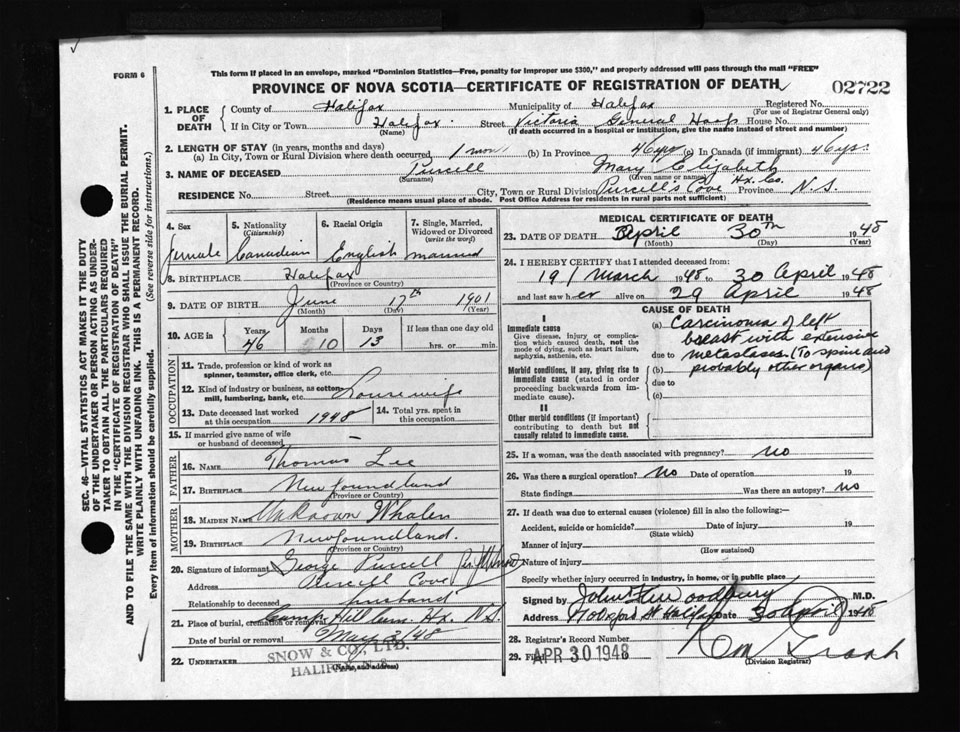 FORM 6
This form if placed in an envelope, marked "Dominion Statistics—Free, penalty for improper use $300," and properly addressed will pass through the mail "FREE"
PROVINCE OF NOVA SCOTIA—CERTIFICATE OF REGISTRATION OF DEATH
02722
1. PLACE OF DEATH
County of Halifax Municipality of Halifax Registered No.
(For use of Registrar General only)
If in City or Town Halifax Street Victoria General Hosp House No.
(Name) (If death occurred in a hospital or institution, give the name instead of street and number)
2. LENGTH OF STAY (in years, months and days)
(a) In City, Town or Rural Division where death occurred 1 mon (b) In Province 46 yrs (c) In Canada (if immigrant) 46 yrs.
3. NAME OF DECEASED Purcell Mary Elizabeth
(Surname) (Given name or names)
RESIDENCE No. Street City, Town or Rural Division Purcell's Cove Hx. Co. Province N.S.
(Residence means usual place of abode. Post Office Address for residents in rural parts not sufficient)
4. Sex
female
5. Nationality (Citizenship)
Canadian
6. Racial Origin
English
7. Single, Married, Widowed or Divorced (write the word)
married
8. BIRTHPLACE Halifax
(Province or Country)
9. DATE OF BIRTH June 17th 1901
(Month) (Day) (Year)
10. AGE in
Years Months Days If less than one day old
46 10 13 hrs. or min.
OCCUPATION
11. Trade, profession or kind of work as spinner, teamster, office clerk, etc.
12. Kind of industry or business, as cotton mill, lumbering, bank, etc. Housewife
13. Date deceased last worked at this occupation 1948
14. Total yrs. spent in this occupation
15. If married give name of wife or husband of deceased —
FATHER
16. NAME Thomas Lee
17. BIRTHPLACE Newfoundland
(Province or Country)
MOTHER
18. MAIDEN NAME Unknown Whalen
19. BIRTHPLACE Newfoundland.
(Province or Country)
20. Signature of informant George Purcell
Address Purcell Cove
Relationship to deceased husband
21. Place of burial, cremation or removal Camp Hill Cem. Hx. N.S.
Date of burial or removal May 3/48
22. UNDERTAKER SNOW & CO., LTD.
HALIFAX
(Name and address)
MEDICAL CERTIFICATE OF DEATH
23. DATE OF DEATH April 30th 1948
(Month) (Day) (Year)
24. I HEREBY CERTIFY that I attended deceased from:
19 March 1948 to 30 April 1948
and last saw her alive on 29 April 1948
CAUSE OF DEATH
I
Immediate cause
Give disease, injury or complication which caused death, not the mode of dying, such as heart failure, asphyxia, asthenia, etc.
Morbid conditions, if any, giving rise to immediate cause (stated in order proceeding backwards from immediate cause).
II
Other morbid conditions (if important) contributing to death but not causally related to immediate cause.
(a) Carcinoma of left
breast with extensive
due to metastases. (To spine and
(b) probably other organs)
due to
(c)
25. If a woman, was the death associated with pregnancy? no
26. Was there a surgical operation? no Date of operation 19
State findings Was there an autopsy? no
27. If death was due to external causes (violence) fill in also the following:—
Accident, suicide or homicide? Date of injury 19
(State which)
Manner of injury
(How sustained)
Nature of injury
Specify whether injury occurred in industry, in home, or in public place
Signed by Woodbury M.D.
Address Halifax Date 30 April 1948
28. Registrar's Record Number
29. Filed APR 30 1948
(Division Registrar)
SEC. 46—VITAL STATISTICS ACT MAKES IT THE DUTY
OF THE UNDERTAKER OR PERSON ACTING AS UNDERTAKER TO OBTAIN ALL THE PARTICULARS REQUIRED
IN THE "CERTIFICATE OF REGISTRATION OF DEATH"
AND TO FILE THE SAME WITH THE DIVISION REGISTRAR WHO SHALL ISSUE THE BURIAL PERMIT.
WRITE PLAINLY WITH UNFADING INK. THIS IS A PERMANENT RECORD.
Every item of information should be carefully supplied. (See reverse side for instructions.)